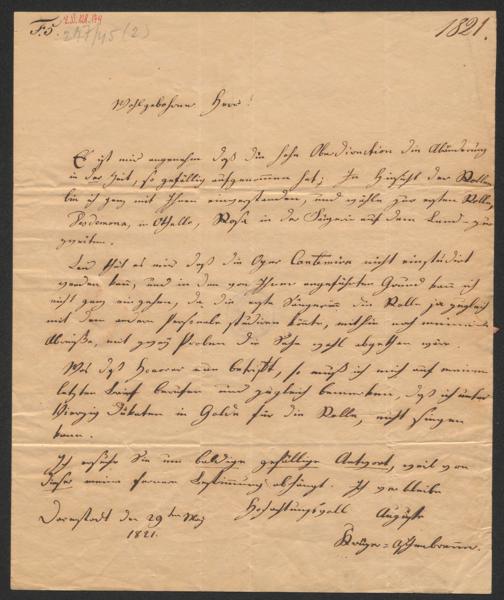 F. 5.
247/45 (2)
1821.
Wohlgebohrner Herr!
Es ist mir angenehm daß die hohe Oberdirection die Abänderung
in der Zeit, so gefällig aufgenommen hat; In Hinsicht der Rollen
bin ich ganz mit Ihnen einverstanden, und wähle zur ersten Rolle,
Desdemona, in Othello, Rosa in der Sängerin auf dem Land zur
zweiten.
Leid thut es mir daß die Oper Cantemire nicht einstudirt
werden kan, und in den von Ihnen angeführten Grund kan ich
nicht ganz eingehen, da die erste Sängerin die Rolle ja zugleich
mit dem andern Personale studiren könte, mithin nach meiner
Abreiße, mit zwey Proben die Sache wohl abgethan wär.
Was das Honorar nun betrifft, so muß ich mich auf meinen
letzten Brief berufen und zugleich bemerken, daß ich unter
Vierzig Dukaten in Golde für die Rolle, nicht singen
kann.
Ich ersuche Sie um baldige gefällige Antwort, weil von
dieser meine fernere Bestimmung abhängt. Ich verbleibe
Hochachtungsvoll Auguste
Darmstadt den 29ten May
1821.
Krüger-Aschenbrenner.